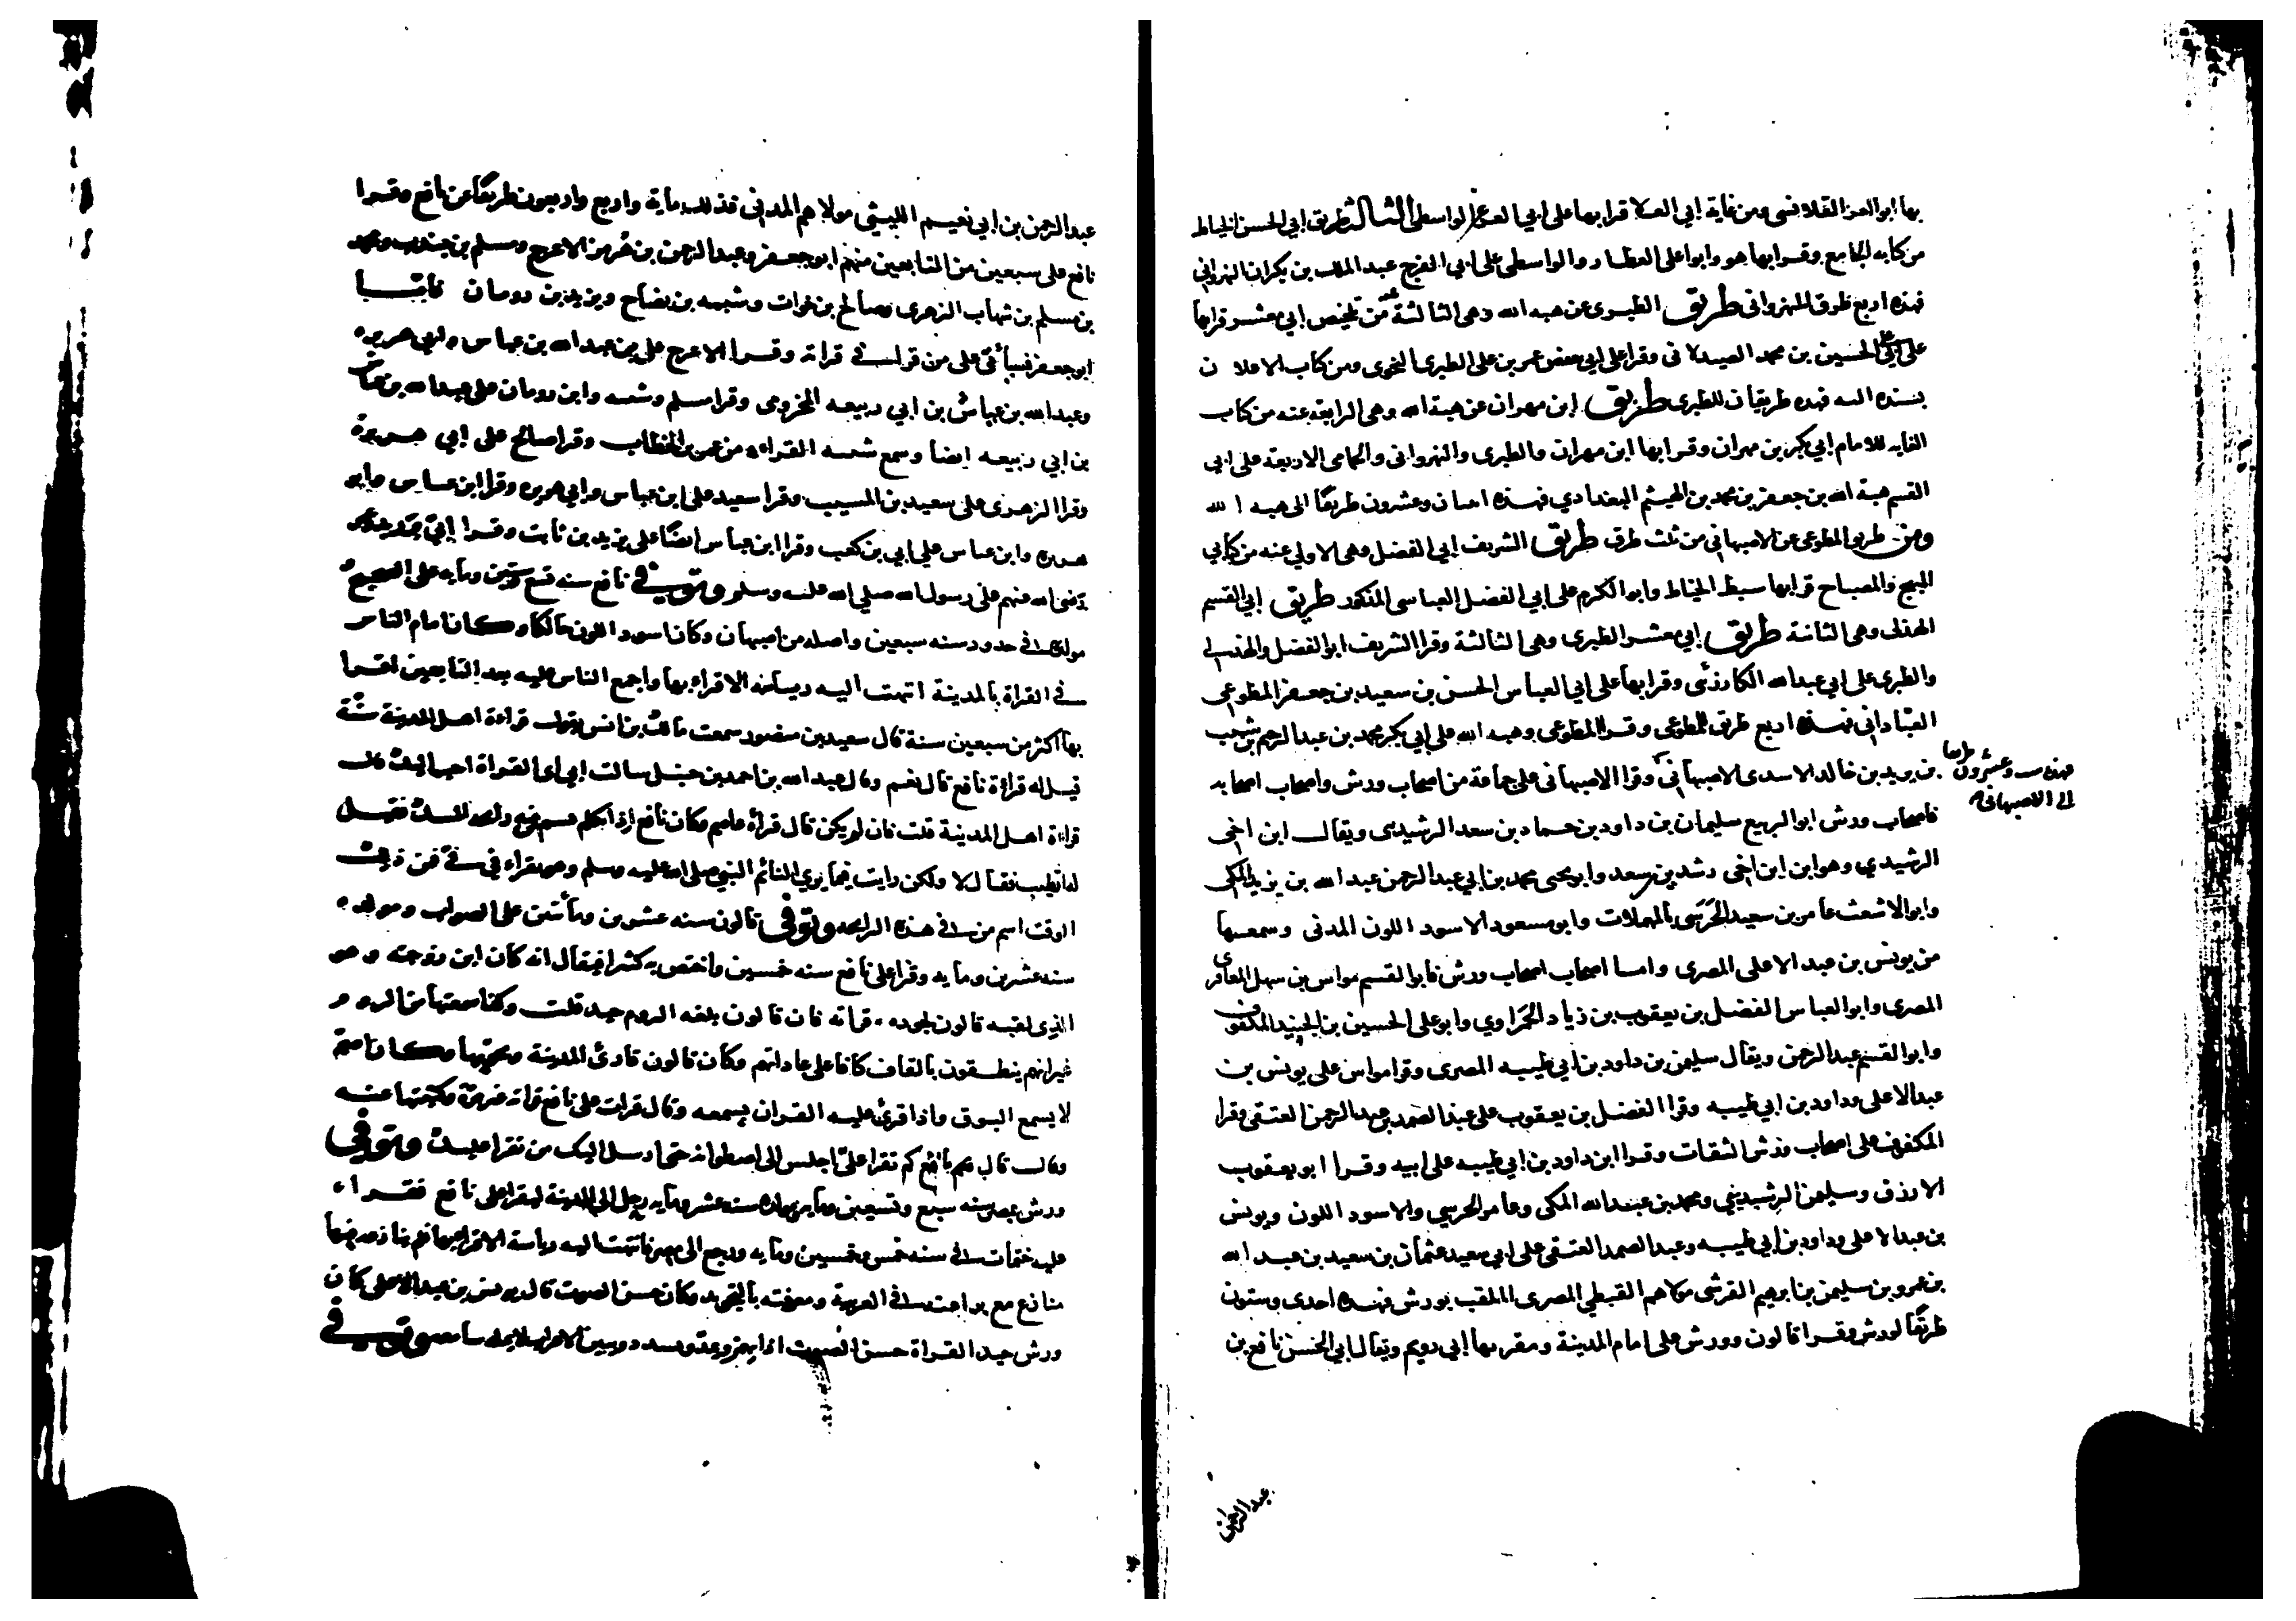 بها ابوالعز القلانسى ومن غاية ابي العلا قرا بها على ابي العز الواسطى الثالث طريق ابي الحسن الخياط
من كتابه الجامع وقرا بها هو وابوا على العطار والواسطى على ابي الفرج عبد الملك بن بكران النهرواني
فهذه اربع طرق للنهروانى طريق الطبرى عن هبه الله وهى الثالثة عنه من تلخيص ابي معشر قرا بها
على ابي على الحسين بن محمد الصيدلانى وقرا على ابي حفص عمر بن على الطبرى النحوى ومن كتاب الاعلان
بسنده اليه فهذه طريقان للطبرى طريق ابن مهران عن هبة الله وهى الرابعة عنه من كتاب
الغايه للامام ابي بكر بن مهران وقرا بها ابن مهران والطبرى والنهروانى والحمامى الاربعة على ابي
القسم هبة الله بن جعفر بن محمد بن الهيثم البغدادي فهذه وعشرون طريقًا الى هبه الله
ومن طريق المطوعى عن الاصبهاني من ثلث طرق طريق الشريف ابي الفضل وهى الاولي عنه من كتابي
المبهج والمصباح قرا بها سبط الخياط وابو الكرم على ابي الفضل العباسى المذكور طريق ابي القسم
الهذلى وهى الثانية طريق ابي معشر الطبرى وهى الثالثة وقرا الشريف ابوالفضل والهذلي
والطبرى على ابي عبدالله الكارزينى وقرا بها على ابي العباس الحسن بن سعيد بن جعفر المطوعى
العبّاداني فهذه اربع طرق للمطوعى وقرا المطوعى وهبه الله على ابي بكر محمد بن عبد الرحيم بن شبيب
بن يزيد بن خالد الاسدى الاصبهانى وقرا الاصبهانى على جماعة من اصحاب ورش واصحاب اصحابه
فهذه وعشرون طريقا
الى الاصبهانى
فاصحاب ورش ابو الربيع سليمان بن داود بن حماد بن سعد الرشيدى ويقال ابن اخى
الرشيدي وهو ابن ابن اخى رشدين بن سعد وابو يحيى محمد بن ابي عبد الرحمن عبد الله بن يزيد المكى
وابو الاشعث عامر بن سعيد الحَرَسى بالمهملات وابو مسعود الاسود اللون المدنى وسمعها
من يونس بن عبد الاعلى المصرى واما اصحاب اصحاب ورش فابو القسم مواس بن سهل المعافرى
المصرى وابو العباس الفضل بن يعقوب بن زياد الحَمراوي وابو على الحسين بن الجنيد المكفوف
وابو القسم عبد الرحمن ويقال سليمن بن داود بن ابي طيبه المصرى وقرا مواس على يونس بن
عبد الاعلى وداود بن ابي طيبه وقرا الفضل بن يعقوب على عبد الصمد بن عبد الرحمن العتقى وقرا
المكفوف على اصحاب ورش الثقات وقرا ابن داود بن ابي طيبه على ابيه وقرا ابو يعقوب
الازرق وسليمن الرشيديني ومحمد بن عبد الله المكى وعامر الحرسي والاسود اللون ويونس
بن عبد الاعلى وداود بن ابي طيبه وعبد الصمد العتقى على ابي سعيد عثمان بن سعيد بن عبد الله
بن عمرو بن سليمن بن ابرهيم القرشى مولاهم القبطي المصرى الملقب بورش فهذه احدى وستون
طريقًا لورش وقرا قالون وورش على امام المدينة ومقرئها ابي رويم ويقال ابي الحسن نافع بن
عبد الرحمن
عبد الرحمن بن ابي نعيم الليثى مولاهم المدنى فذلك ماية واربع واربعون طريقًا عن نافع وقرا
نافع على سبعين من التابعين منهم ابو جعفر وعبد الرحمن بن هُرمز الاعرج ومسلم بن جندب ومحمد
بن مسلم بن شهاب الزهرى وصالح بن خوات وشيبه بن نصاح ويزيد بن رومان فاما
ابو جعفر فسيأتى على من قرا في قراته وقرا الاعرج على عبد الله بن عباس وابي هريره
وعبد الله بن عياش بن ابي ربيعه المخزومى وقرا مسلم وشيبه وابن رومان على عبد الله بن عياش
بن ابي ربيعه ايضا وسمع شيبه القراءة من عمر بن الخطاب وقرا صالح على ابي هريرة
وقرا الزهرى على سعيد بن المسيب وقرا سعيد على ابن عباس وابي هريره وقرا ابن عباس وابو
هريره وابن عياس علي ابي بن كعب وقرا ابن عباس ايضًا على زيد بن ثابت وقرا ابيّ وزيد وعمر
رضى الله عنهم على رسول الله صلي الله عليه وسلم وتوفي نافع سنه تسع وستين ومايه على الصحيح
مولده في حدود سنه سبعين واصله من اصبهان وكان اسود اللون حالكا وكان امام الناس
في القراة بالمدينة انتهت اليه رياسة الاقراء بها واجمع الناس عليه بعد التابعين اقرا
بها اكثر من سبعين سنة قال سعيد بن منصور سمعت مالك بن انس يقول قراءة اهل المدينة سنّة
قيل له قراءة نافع قال نعم وقال عبد الله بن احمد بن حنبل سالت ابي اى القراة احب اليك قال
قراءة اهل المدينة قلت فان لم يكن قال قرأة عاصم وكان نافع اذا تكلم يشم من فيه رايحة المسك فقيل
له اتطيب فقال لا ولكن رايت فيما يري النائم النبي صلى الله عليه وسلم وهو يقراء فى فىّ فمن ذلك
الوقت اشم من فى هذه الرايحه وتوفي قالون سنه عشرين ومأتين على الصواب ومولده
سنه عشرين ومايه وقرأ على نافع سنه خمسين واختص به كثيرا فيقال انه كان ابن زوجته وهو
الذى لقبه قالون لجوده قراته فان قالون بلغه الروم جيد قلت وكذا سمعتها من الروم
غير انهم ينطقون بالقاف كافا على عاداتهم وكان قالون قارئ المدينة ونحويها وكان اصم
لا يسمع البوق واذا قرئ عليه القران يسمعه وقال قرات على نافع قراته غير مرة وكتبتها عنه
وقال قال لى نافع كم تقرا علىّ اجلس الى اصطوانه حتى ارسل اليك من يقرا عليك وتوفي
ورش بمصر سنه سبع وتسعين ومايه ومولده سنه عشر ومايه رحل الى المدينة ليقرا على نافع فقراء
عليه ختمات في سنه خمس وخمسين ومايه ورجع الى مصر فانتهت اليه رياسة الاقراء بها فلم ينازعه فيها
منازع مع براعته في العربية ومعرفته بالتجويد وكان حسن الصوت قال يونس بن عبد الاعلى كان
ورش جيد القراة حسن الصوت اذا يهمز ويمد ويشدد ويبين الاعراب لا يمله سامعه وتوفي